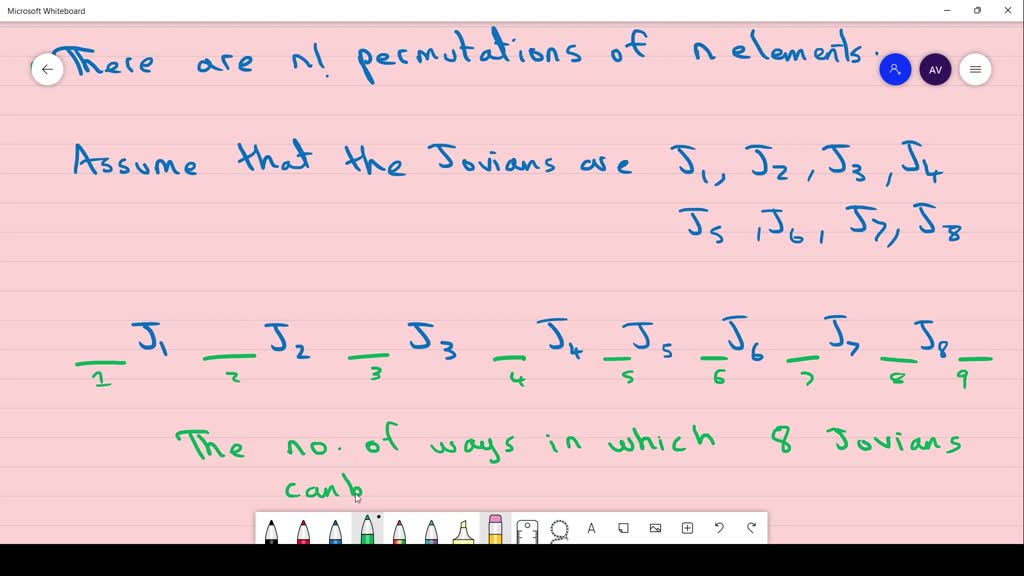 Microsoft Whiteboard
There are n! permutations of n elements.
AV
Assume that the Jovians are J1, J2, J3, J4
J5, J6, J7, J8
J1 J2 J3 J4 J5 J6 J7 J8
1 2 3 4 5 6 7 8 9
The no. of ways in which 8 Jovians
can b
A